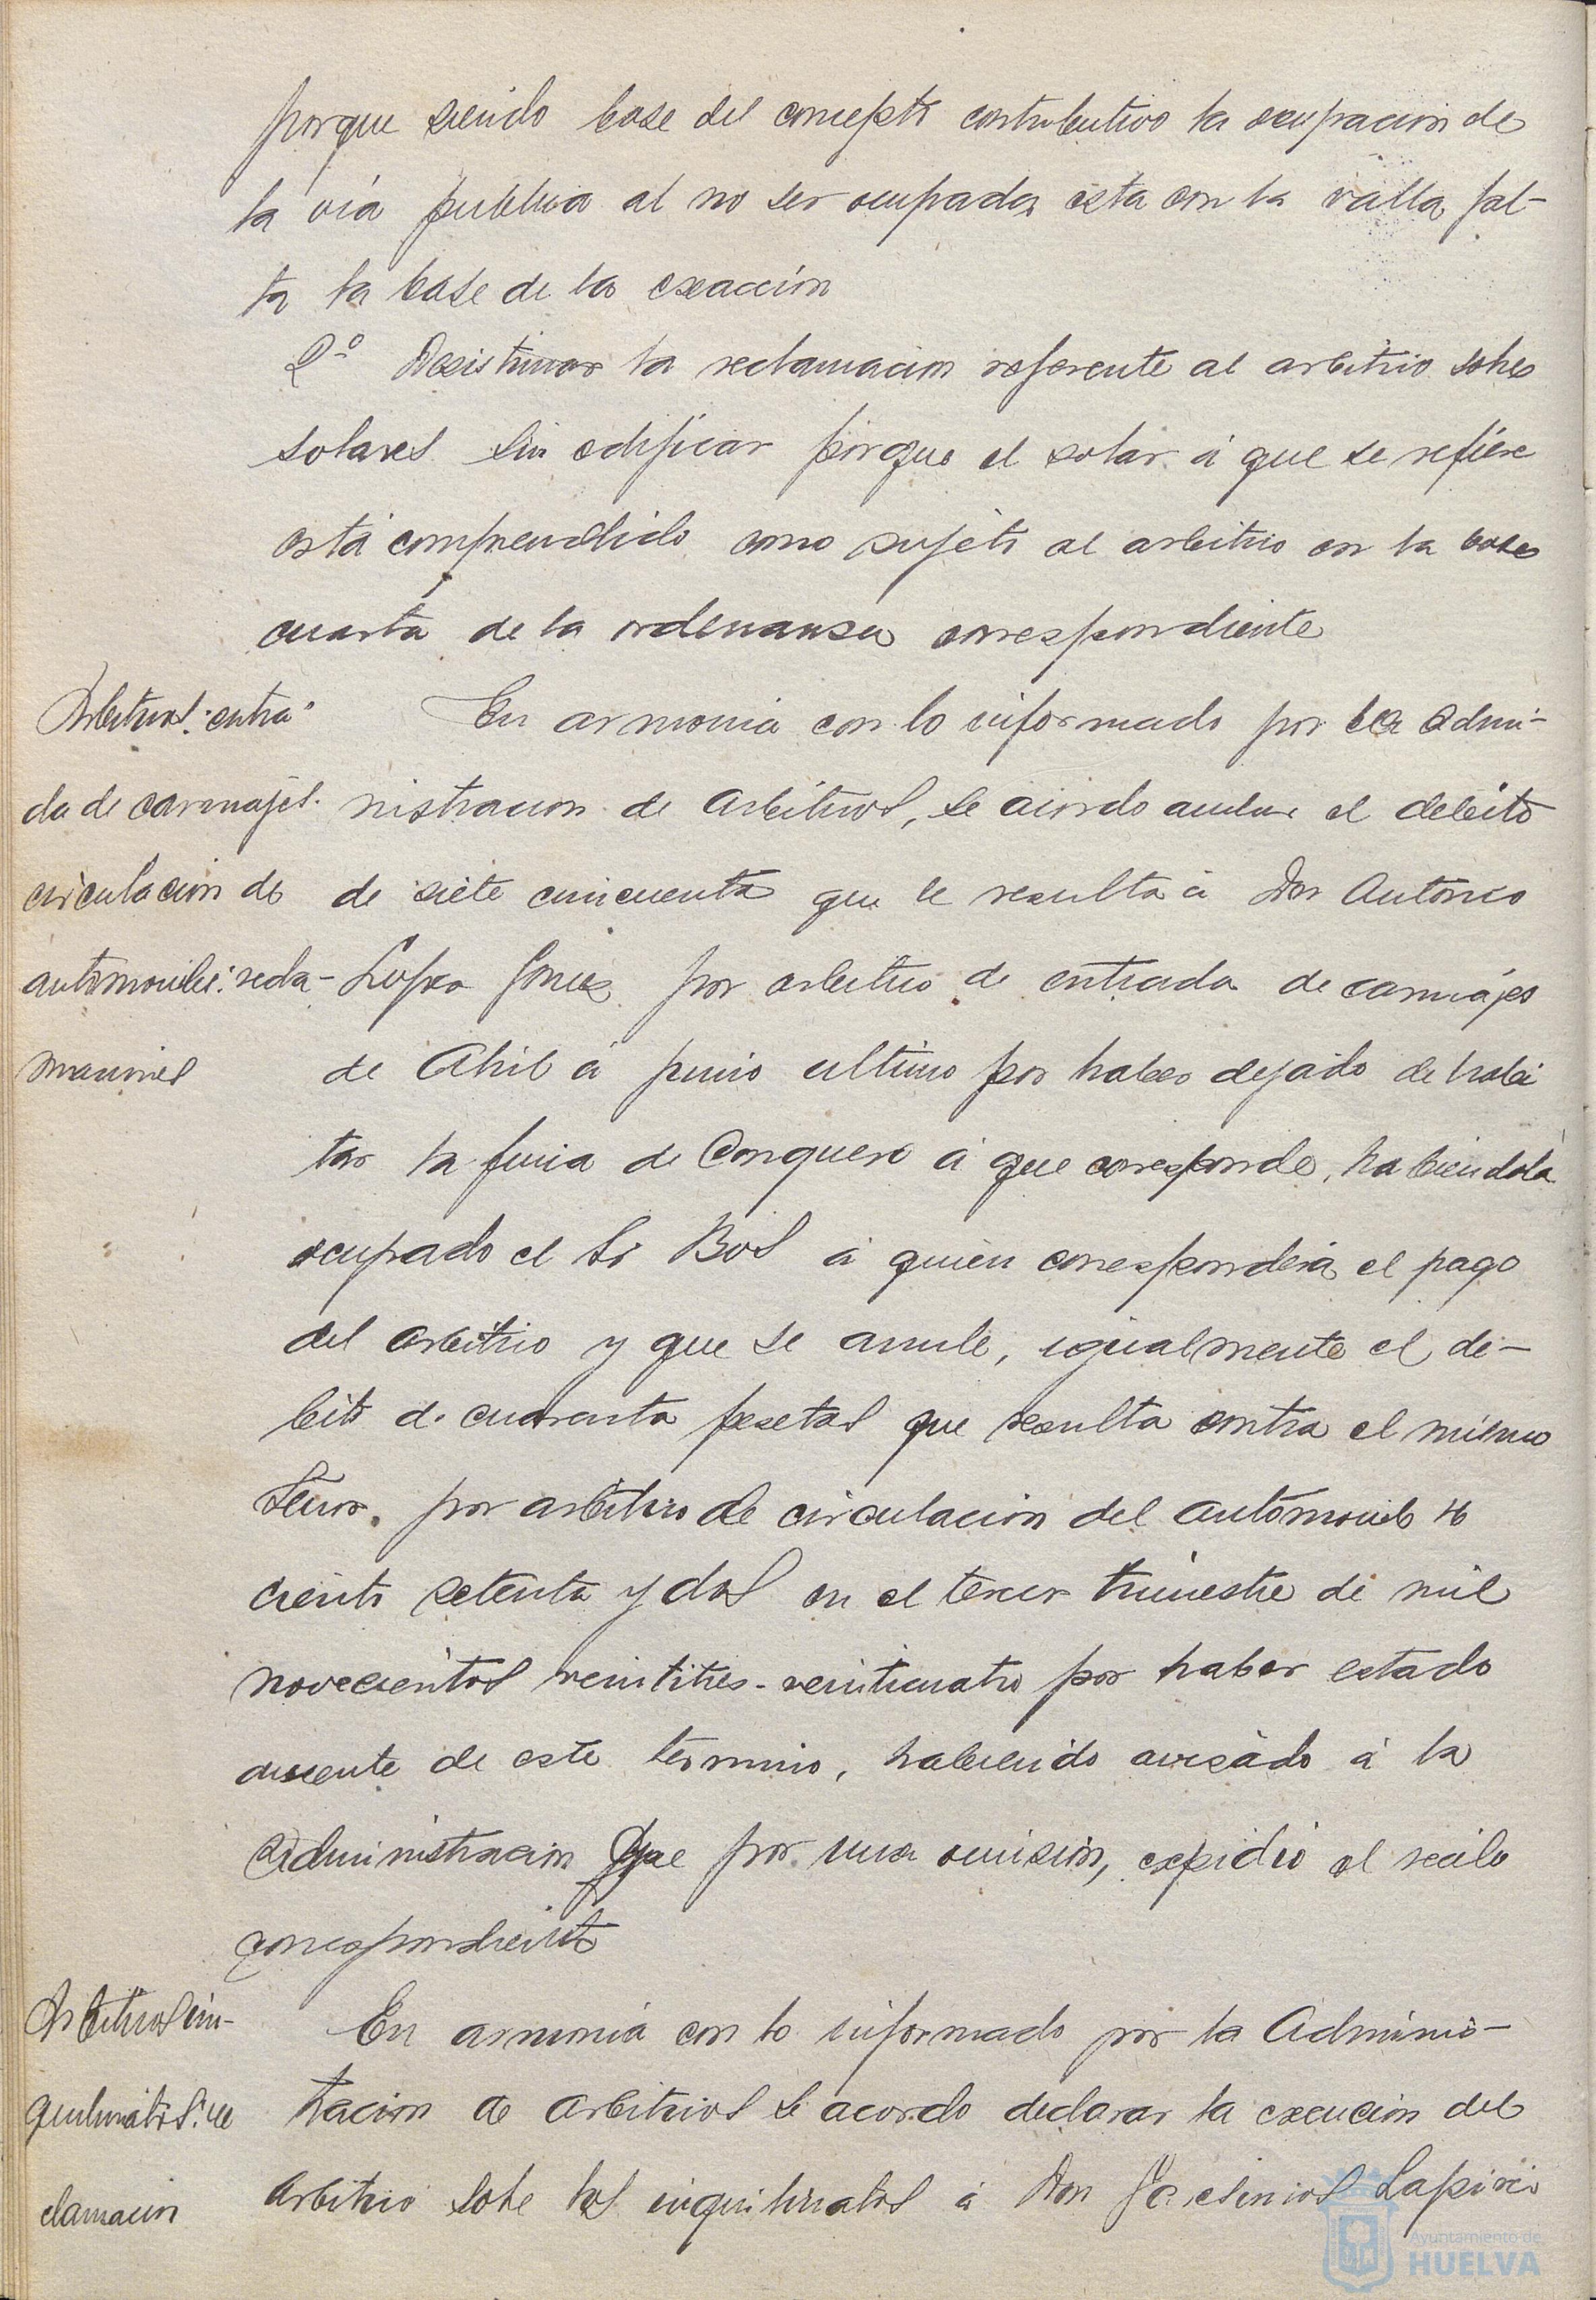 porque siendo base del concepto contributivo la ocupacion de
la vía publica al no ser ocupada esta con la valla fal-
ta la base de la exacción
2º Desistimar la reclamacion referente al arbitrio sobre
solares sin edificar porque el solar á que se refiere
está comprendido como sujeto al arbitrio en la base
cuarta de la ordenansa correspondiente
Arbitrios: entra-
da de carruajes.
circulacion de
automoviles: recla-
maciones
En armonia con lo informado por la Admi-
nistracion de Arbitrios, se acordo anular el debito
de siete cincuenta que le resulta á Don Antonio
Lopez Gomez por arbitrio de entrada de carruajes
de Abril á junio ultimo por haber dejado de habi
tar la finca de Conquero á que corresponde, habiendola
ocupado el Sr Bos á quien corresponderá el pago
del arbitrio y que se anule, igualmente el de-
bito de cuarenta pesetas que resulta contra el mismo
Señor. por arbitrio de circulacion del automovil
ciento setenta y dos en el tercer trimestre de mil
novecientos veintitres-veinticuatro por haber estado
ausente de este termino, habiendo avisado á la
Administracion que por una omisión, expidió el recibo
correspondiente
Arbitrios in-
quilinatos: re
clamacion
En armonia con lo informado por la Adminis-
tracion de Arbitrios se acordo declarar la exencion del
arbitrio sobe los inquilinatos á Don
Ayuntamiento de
HUELVA